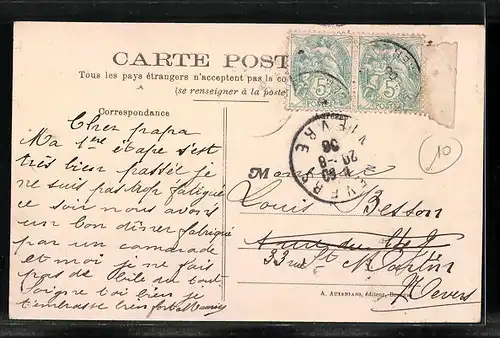 CARTE POST
Tous les pays étrangers n'acceptent pas la co
(se renseigner à la poste)
Correspondance
Cher papa
Ma 1ère étape s'est
très bien passée je
ne suis pas trop fatigué
ce soir nous avons
un bon dîner fabriqué
par un camarade
et moi je ne fais
pas de bile du tout
Soigne toi bien je
t'embrasse bien fort
5c
5c
POSTES
POSTES
NEVERS
NIEVRE
20 -8
06
M
Louis Besson
33 rue St Martin
Nevers
10
éditeur,